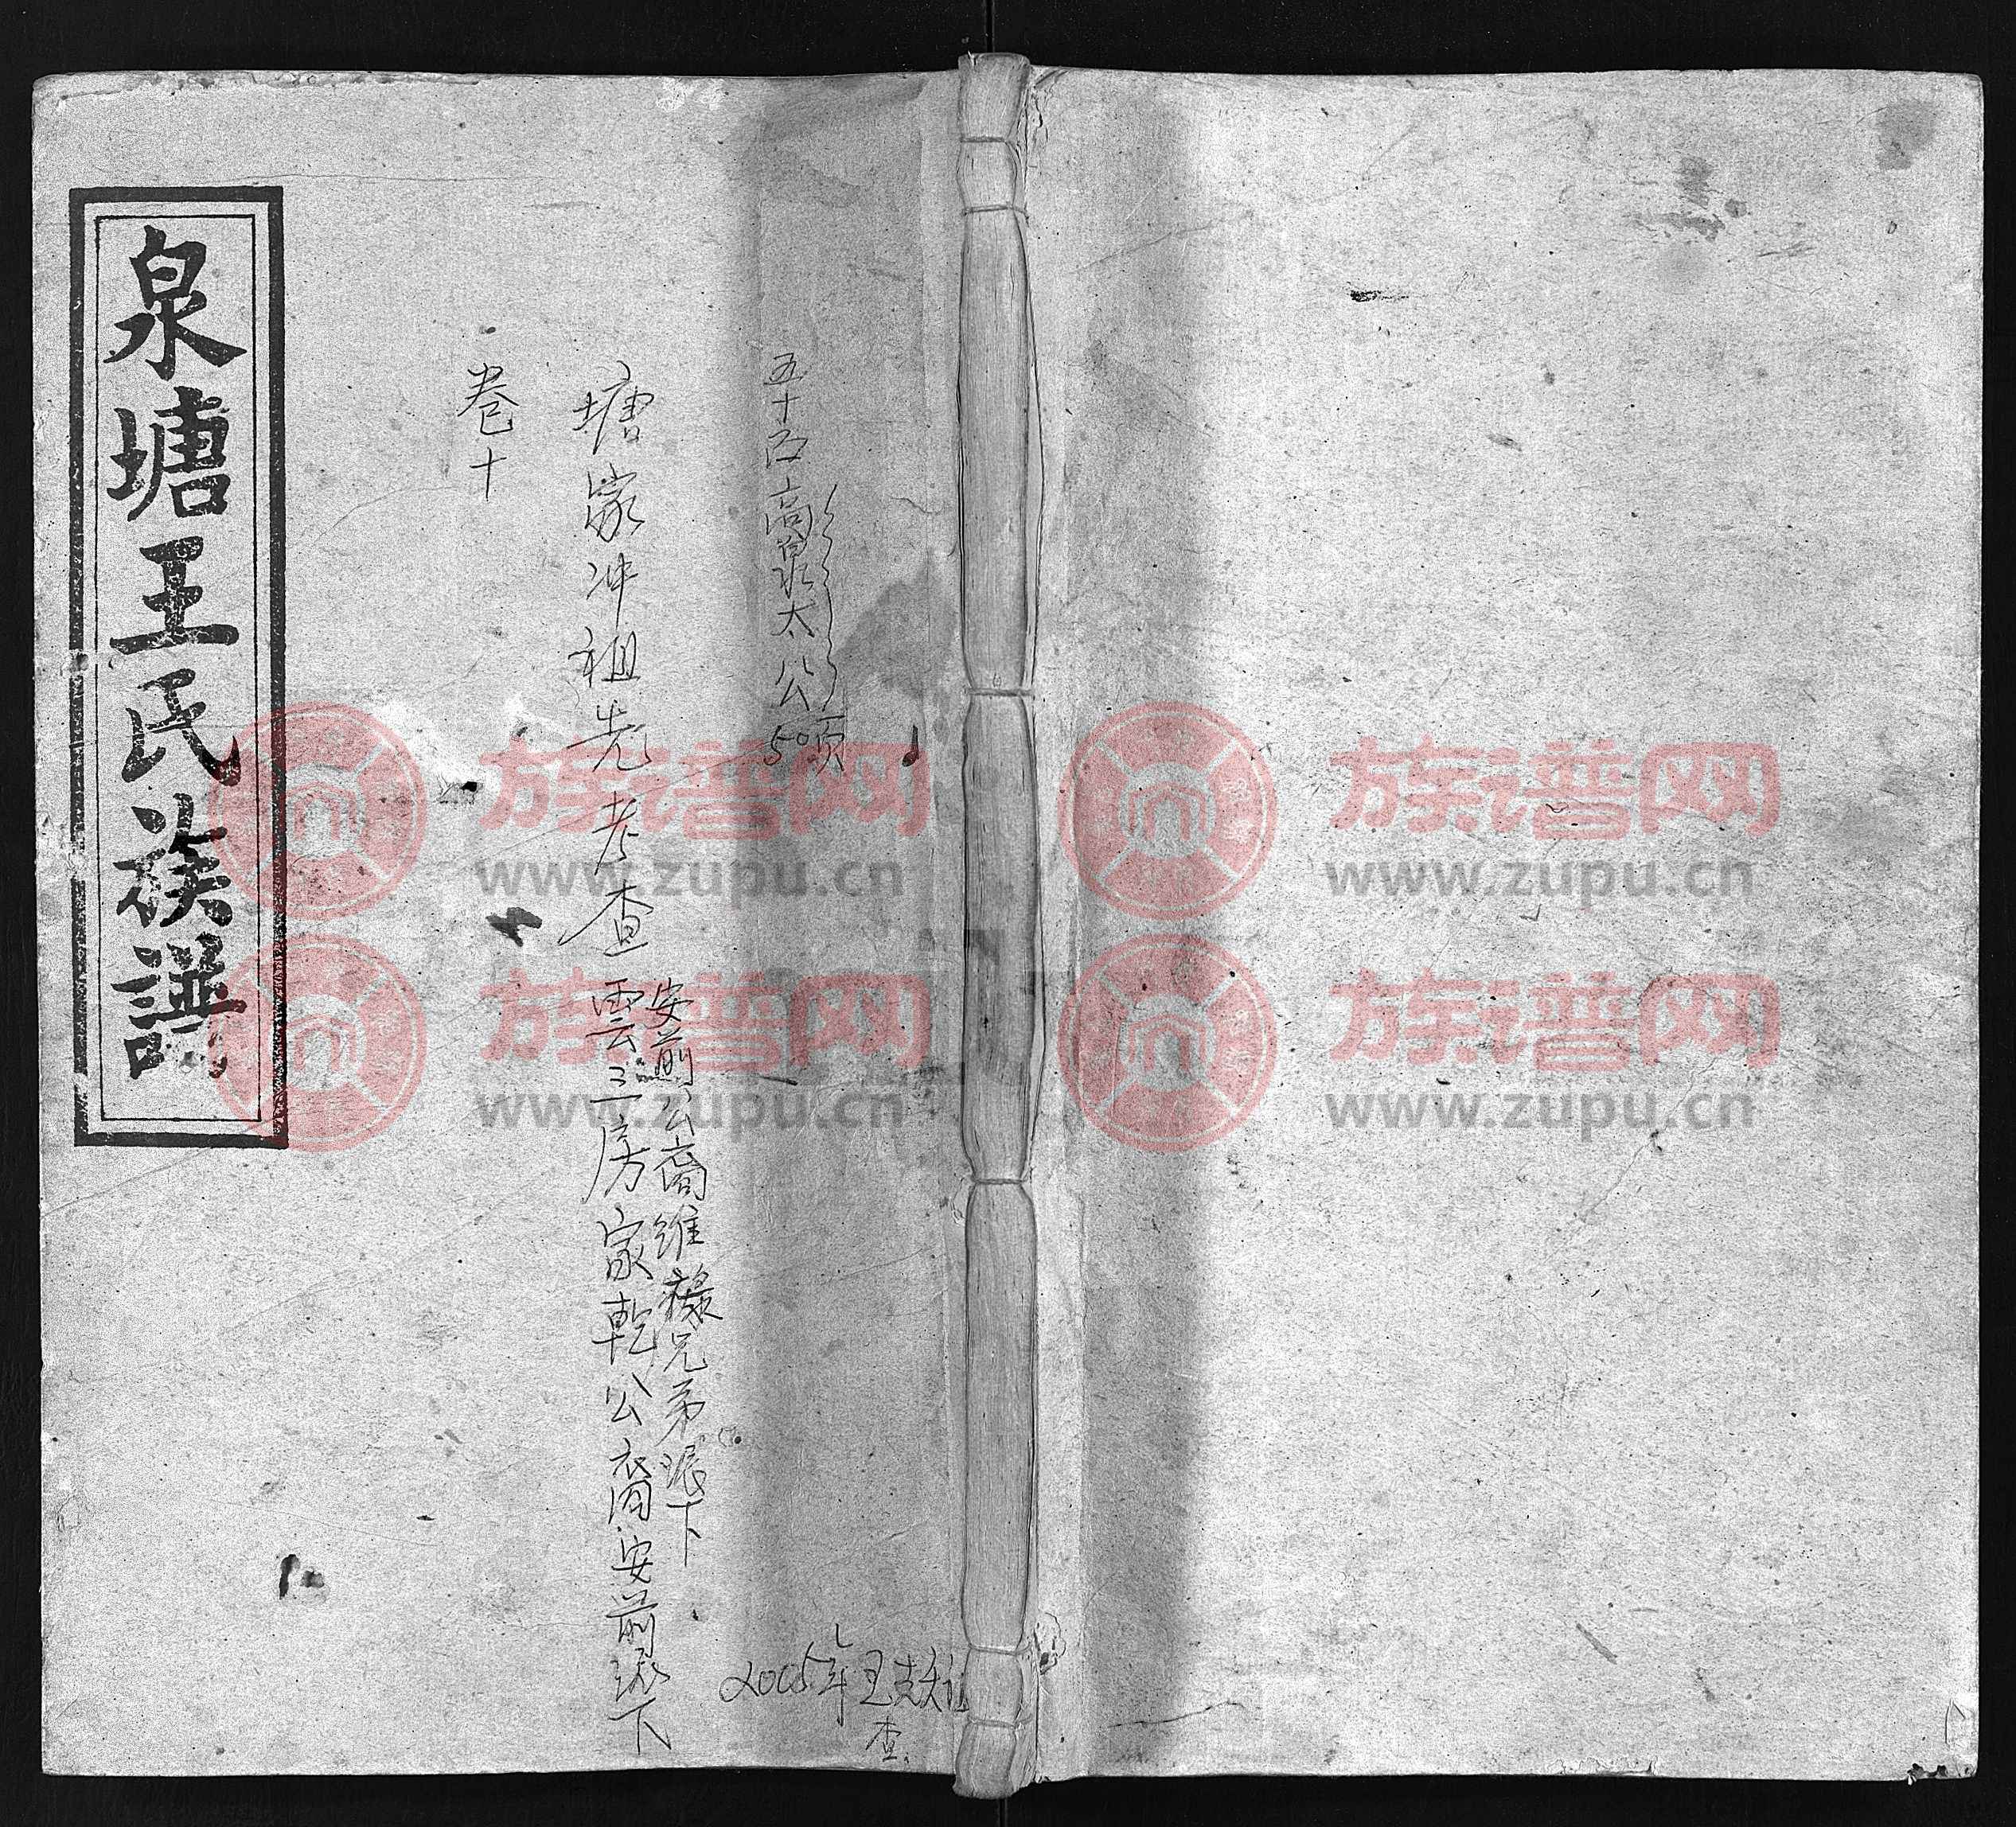 泉塘王氏族譜
卷十
塘家冲祖先考查
安前公裔维禄兄弟派下
雲三房家乾公裔安前派下
高泉太公
50页
2005年王
查
族谱网
www.zupu.cn
族谱网
www.zupu.cn
族谱网
www.zupu.cn
族谱网
www.zupu.cn